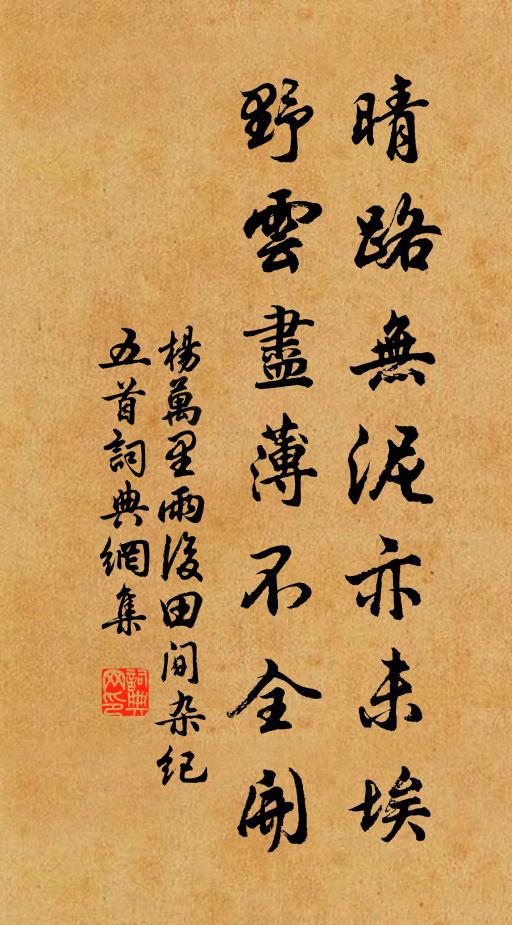 晴路無泥亦未埃
野雲盡薄不全開
楊萬里雨後田間杂紀
五首詞典網集
詞典网印